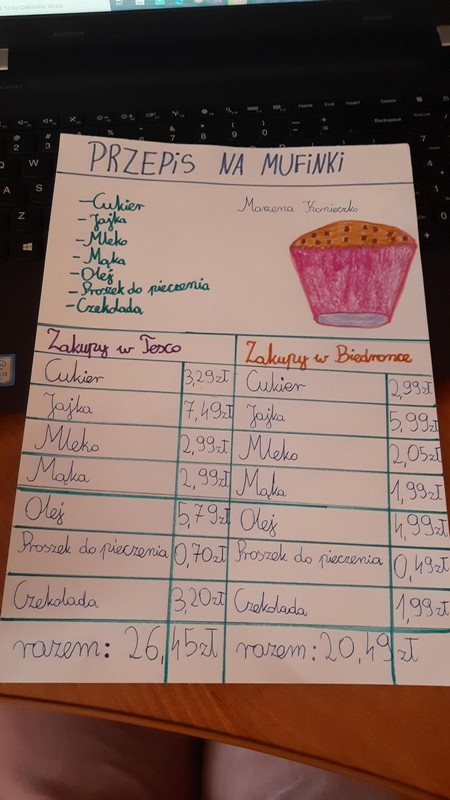 PRZEPIS NA MUFINKI
Marzena Konieczko
- Cukier
- Jajka
- Mleko
- Mąka
- Olej
- Proszek do pieczenia
- Czekolada
Zakupy w Tesco
Cukier 3,29zł
Jajka 7,49zł
Mleko 2,99zł
Mąka 2,99zł
Olej 5,79zł
Proszek do pieczenia 0,70zł
Czekolada 3,20zł
razem: 26,45zł
Zakupy w Biedronce
Cukier 2,99zł
Jajka 5,99zł
Mleko 2,05zł
Mąka 1,99zł
Olej 4,99zł
Proszek do pieczenia 0,49zł
Czekolada 1,99zł
razem: 20,49zł